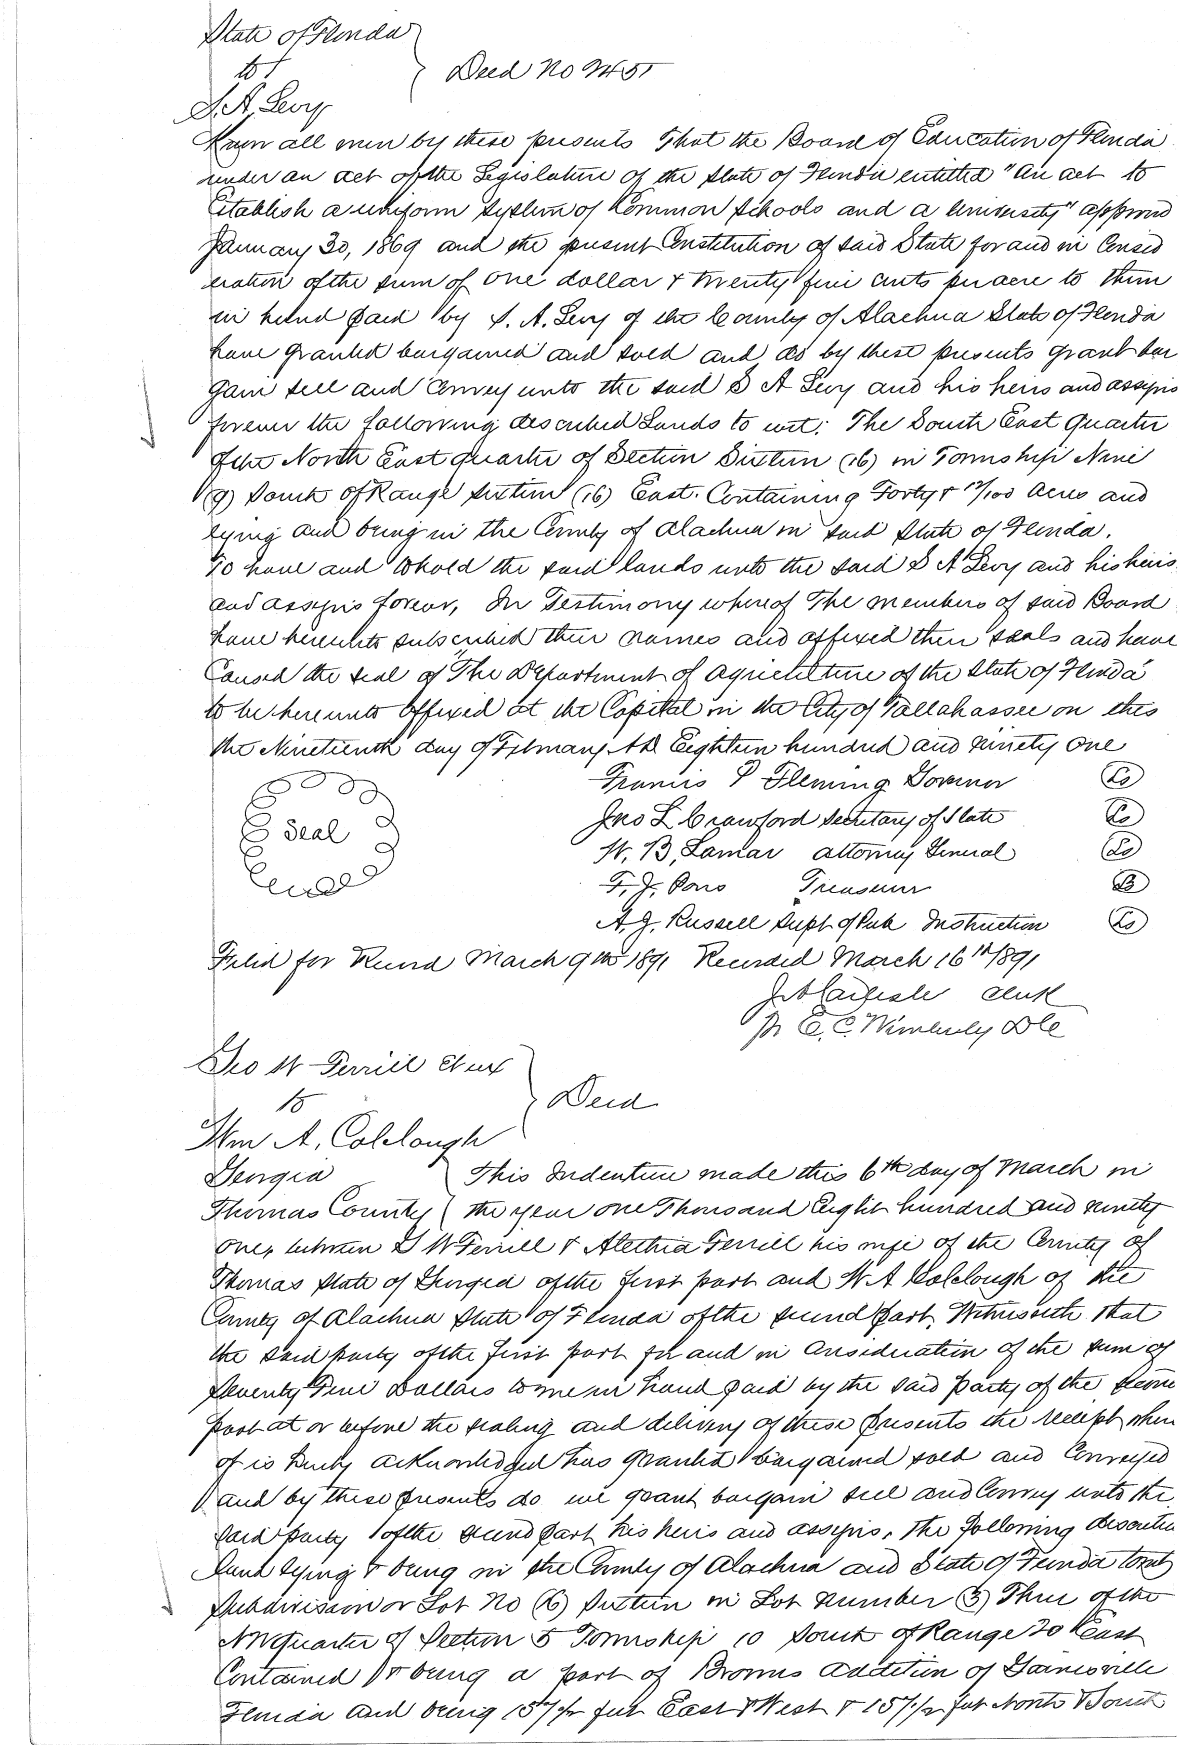 State of Florida
to
Deed No 2451
S. A. Levy
Know all men by these presents That the Board of Education of Florida
under an act of the Legislature of the State of Florida entitled "An act to
Establish a uniform system of Common Schools and a University" approved
January 30, 1869 and the present Constitution of said State for and in Consid
eration of the sum of one dollar & twenty five cents per acre to them
in hand paid by S. A. Levy of the County of Alachua State of Florida
have granted bargained and sold and do by these presents grant bar
gain sell and convey unto the said S A Levy and his heirs and assigns
forever the following described Lands to wit: The South East quarter
of the North East quarter of Section Sixteen (16) in Township Nine
(9) South of Range sixteen (16) East. Containing Forty & /100 Acres and
lying and being in the County of Alachua in said State of Florida.
To have and to hold the said lands unto the said S A Levy and his heirs
and assigns forever, In Testimony whereof The members of said Board
have hereunto subscribed their names and affixed their seals and have
Caused the seal of "The Department of Agriculture of the State of Florida"
to be hereunto affixed at the Capital in the City of Tallahassee on this
the Nineteenth day of February A.D. Eighteen hundred and ninety one
Francis P Fleming Governor Ls
Jno L Crawford Secretary of State Ls
Seal
W. B. Lamar Attorney General Ls
F. J. Pons Treasurer Ls
A. J. Russell Supt of Pub Instruction Ls
Filed for Record March 9th 1891 Recorded March 16th 1891
J A Carlisle Clerk
Pr E. C. Wimberly D C
Geo W Ferrill et ux
to
Deed
Wm A. Colclough
Georgia This Indenture made this 6th day of March in
Thomas County the year one Thousand Eight hundred and ninety
one, between G W Ferrill & Alethia Ferrill his wife of the County of
Thomas State of Georgia of the first part and W A Colclough of the
County of Alachua State of Florida of the second part, Witnesseth that
the said party of the first part for and in consideration of the sum of
Seventy Five Dollars to me in hand paid by the said party of the second
part at or before the sealing and delivery of these presents the receipt when
of is hereby acknowledged has granted bargained sold and Conveyed
and by these presents do we grant bargain sell and Convey unto the
said party of the second part his heirs and assigns, the following described
land lying & being in the County of Alachua and State of Florida to wit
Subdivision or Lot No (16) Sixteen in Lot number (3) Three of the
NW quarter of Section 5 Township 10 South of Range 20 East
Contained & being a part of Browns addition of Gainesville
Florida and being 157 1/2 feet East & West & 157 1/2 feet North & South